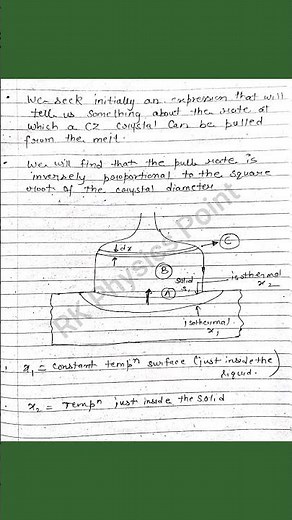 • We seek initially an expression that will
tell us something about the rate at
which a CZ crystal can be pulled
from the melt.
• We will find that the pull rate is
inversely proportional to the square
root of the crystal diameter
dx
C
B
solid
isothermal
x2
A
isothermal
x1
RK Physics Point
• x1 = constant tempn surface (just inside the
liquid.)
• x2 = Tempn just inside the solid